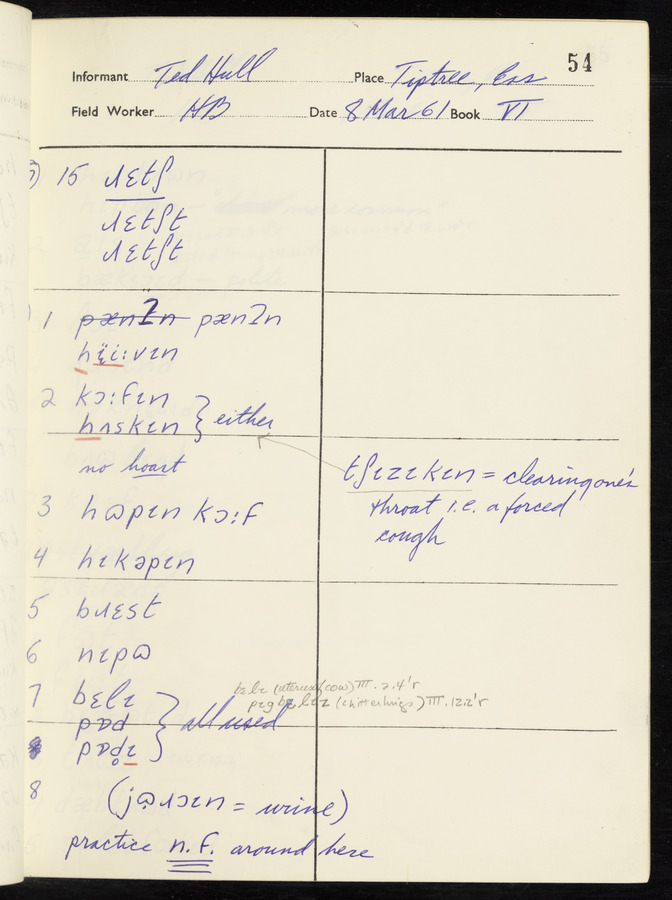 54
Informant Ted Hull Place Tiptree, Ess
Field Worker HB Date 8 Mar 61 Book VI
15 ɹɛtʃ
ɹɛtʃt
ɹɛtʃt
1 pænɪn pænɪn
hï̞i:vɪn
2 kɔ:fɪn
hʌskɪn } either
no hoast
tʃɪzɪkɪn = clearing one's
throat i.e. a forced
cough
3 hɷpɪn kɔ:f
4 hɪkəpɪn
5 bɹɛst
6 nɪpɷ
7 bɛlɪ
pɒd } all used
pɒd̥ɪ
bɛlɪ (uterus of cow) III.2.4'r
pɪgbɛlɪz (chitterlings) III.12.2'r
8 (jɷ̣ɹɔɪn = urine)
practice n.f. around here